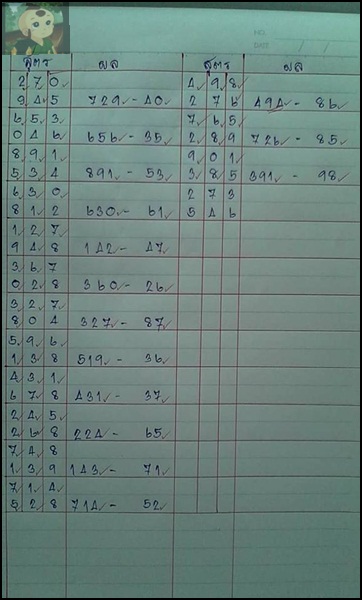 NO.
DATE / /
สูตร ผล
2 7 0
9 4 5 729 - 40
6 5 3
0 4 6 656 - 35
8 9 1
5 3 4 891 - 53
6 3 0
8 1 2 630 - 61
1 2 7
9 4 8 142 - 47
3 6 7
0 2 8 360 - 26
3 2 7
8 0 4 327 - 87
5 9 6
1 3 8 519 - 36
4 3 1
6 7 8 431 - 37
2 4 5
2 6 8 224 - 65
7 4 8
1 3 9 143 - 71
7 1 4
5 2 8 714 - 52
สูตร ผล
4 9 8
2 7 6 494 - 86
7 6 5
2 8 9 726 - 85
9 0 1
3 8 5 391 - 98
2 7 3
5 4 6